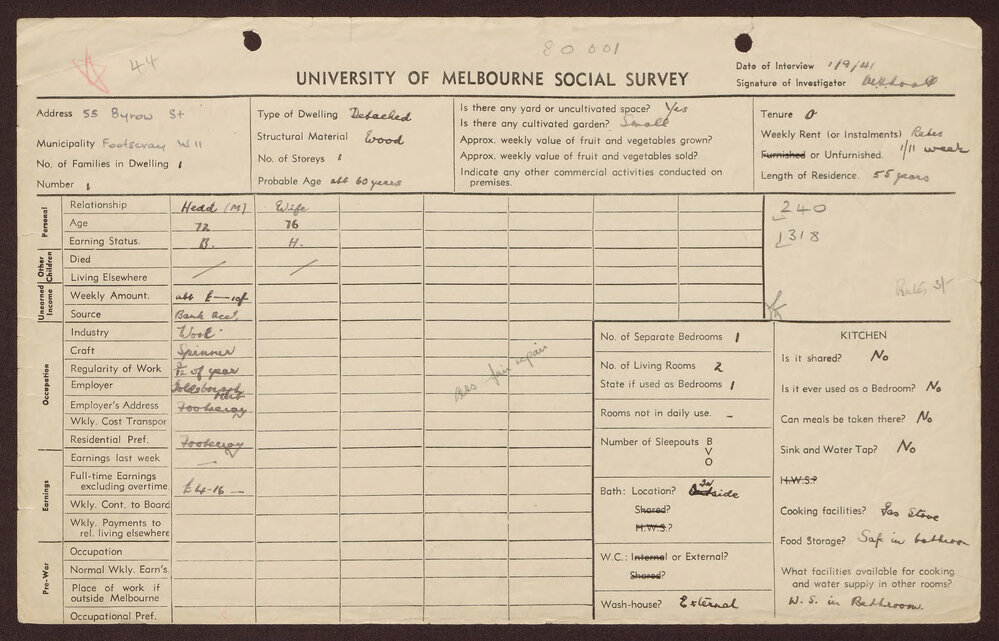 80601
44
UNIVERSITY OF MELBOURNE SOCIAL SURVEY
Date of Interview 1/9/41
Signature of Investigator
Address 55 Byron St
Municipality Footscray W11
No. of Families in Dwelling 1
Number 1
Type of Dwelling Detached
Structural Material Wood
No. of Storeys 1
Probable Age abt 60 years
Is there any yard or uncultivated space? Yes
Is there any cultivated garden? Small
Approx. weekly value of fruit and vegetables grown?
Approx. weekly value of fruit and vegetables sold?
Indicate any other commercial activities conducted on
premises.
Tenure O
Weekly Rent (or Instalments) Rates
1/11 week
Furnished or Unfurnished.
Length of Residence. 55 years
Personal
Relationship Head (M) Wife
Age 72 76
Earning Status. B. H.
Other Children
Died
Living Elsewhere
Unearned Income
Weekly Amount. abt £—10/
Source Bank Acct.
Occupation
Industry Wool
Craft Spinner
Regularity of Work of year
Employer
Employer's Address Footscray
Wkly. Cost Transpor
Residential Pref. Footscray
Earnings
Earnings last week —
Full-time Earnings
excluding overtime. £4-16 —
Wkly. Cont. to Board
Wkly. Payments to
rel. living elsewhere
Pre-War
Occupation
Normal Wkly. Earn's.
Place of work if
outside Melbourne
Occupational Pref.
fair repair
240
1318
Rates
No. of Separate Bedrooms 1
No. of Living Rooms 2
State if used as Bedrooms 1
Rooms not in daily use. –
Number of Sleepouts B
V
O
Bath: Location? Inside
Shared?
H.W.S.?
W.C.: Internal or External?
Shared?
Wash-house? External
KITCHEN
Is it shared? No
Is it ever used as a Bedroom? No
Can meals be taken there? No
Sink and Water Tap? No
H.W.S.?
Cooking facilities? Gas Stove
Food Storage? Safe in bathroom
What facilities available for cooking
and water supply in other rooms?
W. S. in Bathroom.